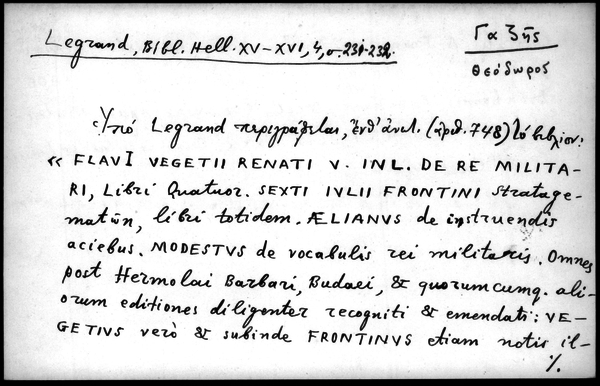 Legrand, Bibl. Hell. XV-XVI, 4, σ. 231-232.
Γαζῆς
Θεόδωρος
Ὑπό Legrand περιγράφεται, ἔνθ' ἀνωτ. (ἀριθ. 748) τό βιβλίον:
« FLAVI VEGETII RENATI V. INL. DE RE MILITA-
RI, Libri Quatuor. SEXTI IVLII FRONTINI Stratage-
matῶn, libri totidem. ÆLIANVS de instruendis
aciebus. MODESTVS de vocabulis rei militaris. Omnes
post Hermolai Barbari, Budaei, & quorumcumq. ali-
orum editiones diligenter recogniti & emendati: VE-
GETIVS verò & subinde FRONTINVS etiam notis il-
%.